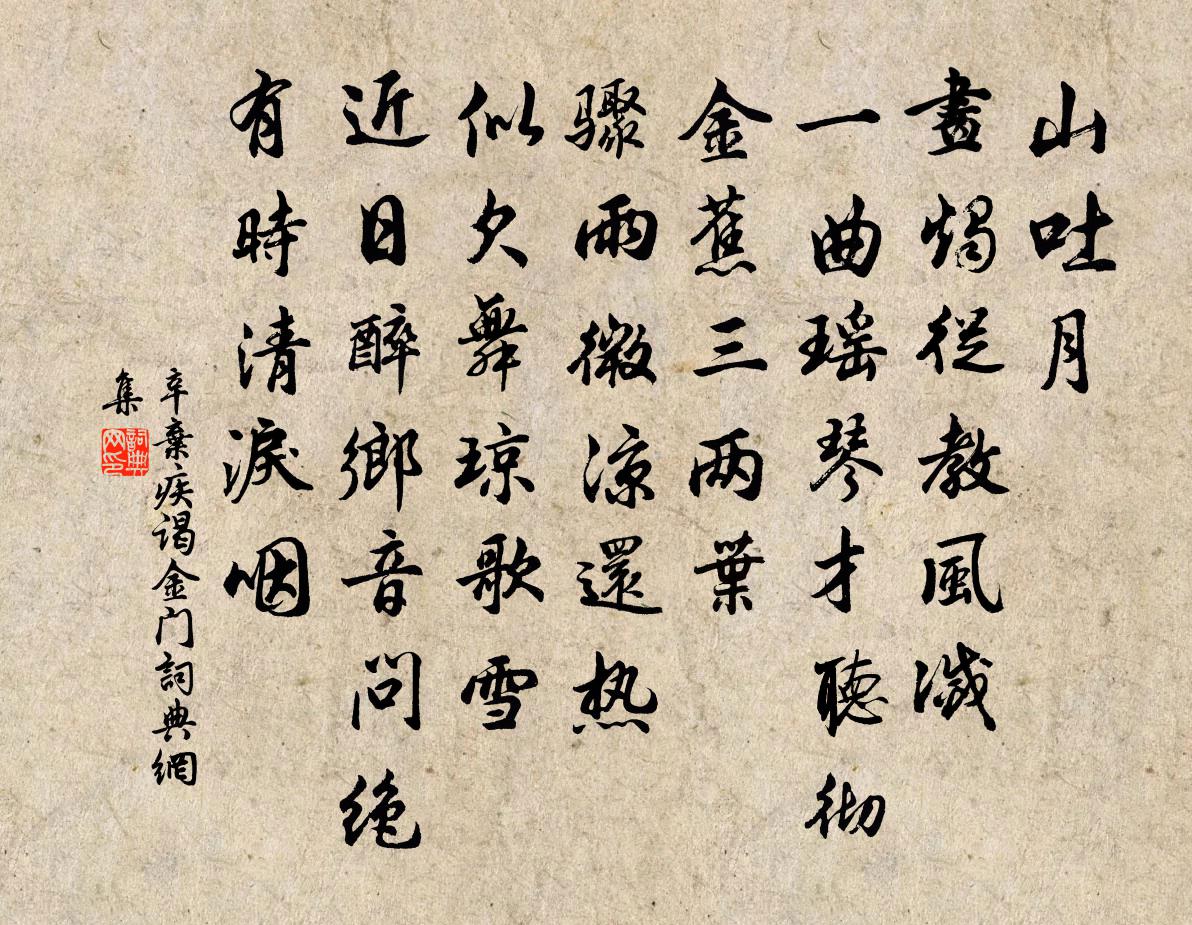 山吐月
畫燭從教風滅
一曲瑶琴才聽彻
金蕉三两葉
驟雨微涼還热
似欠舞琼歌雪
近日醉鄉音问绝
有時清淚咽
辛棄疾谒金门詞典網
集
詞典
网印